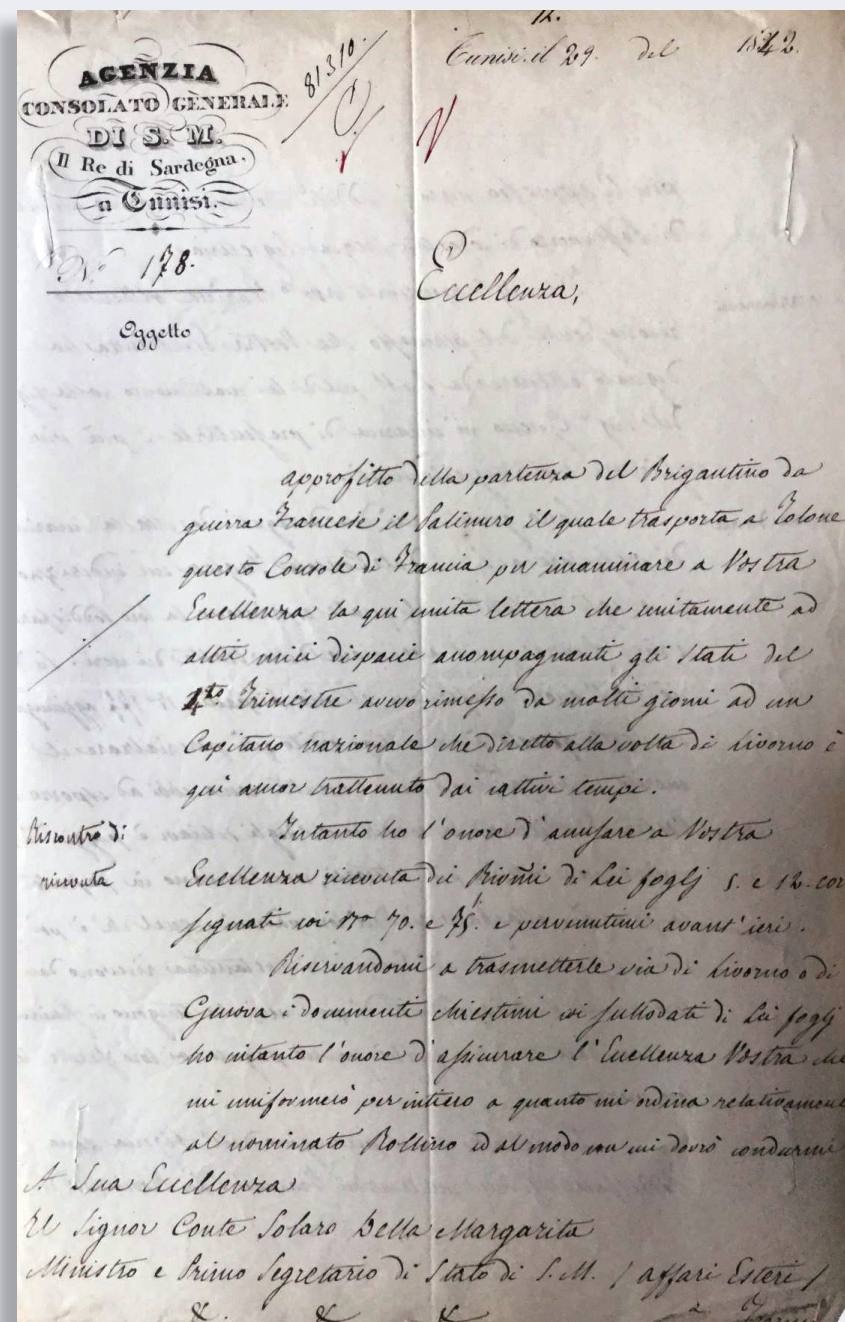 12.
Tunisi. il 29. del 1842.
81310.
AGENZIA
CONSOLATO GENERALE
DI S. M.
Il Re di Sardegna.
a Tunisi.
N.º 178.
Oggetto
Eccellenza,
approfitto della partenza del Brigantino da
guerra Francese il Palinuro il quale trasporta a Tolone
questo Console di Francia per incaminare a Vostra
Eccellenza la qui unita lettera che unitamente ad
altri miei dispacci accompagnanti gli Stati del
4.to Trimestre avevo rimesso da molti giorni ad un
Capitano nazionale che diretto alla volta di Livorno è
qui ancor trattenuto dai cattivi tempi.
Riscontro di
ricevuta
Intanto ho l'onore d'accusare a Vostra
Eccellenza ricevuta dei di Lei foglj 5. e 12. cor
segnati coi Nⁱ 70. e 75. e pervenutimi avant'ieri.
Riservandomi a trasmetterle via di Livorno o di
Genova i documenti chiestimi coi sullodati di Lei foglj
ho intanto l'onore d'assicurare l'Eccellenza Vostra che
mi uniformerò per intiero a quanto mi ordina relativamente
al nominato Rollino ed al modo con cui dovrò condurmi
A Sua Eccellenza
Il Signor Conte Solaro Della Margarita
Ministro e Primo Segretario di Stato di S. M. / affari Esteri /
&. &. &. a